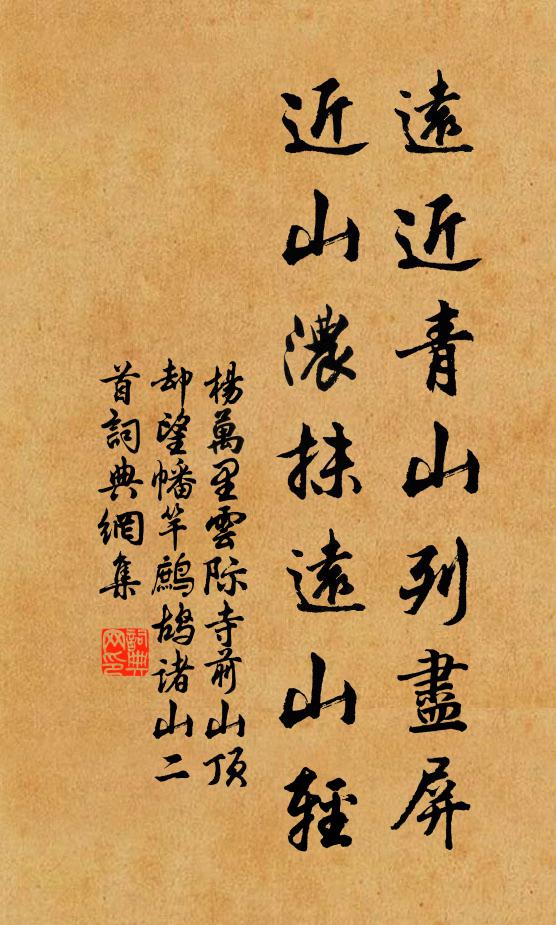 遠近青山列盡屏
近山濃抹遠山輕
楊萬里雲际寺前山頂
却望幡竿鷓鴣诸山二
首詞典網集
詞典网印